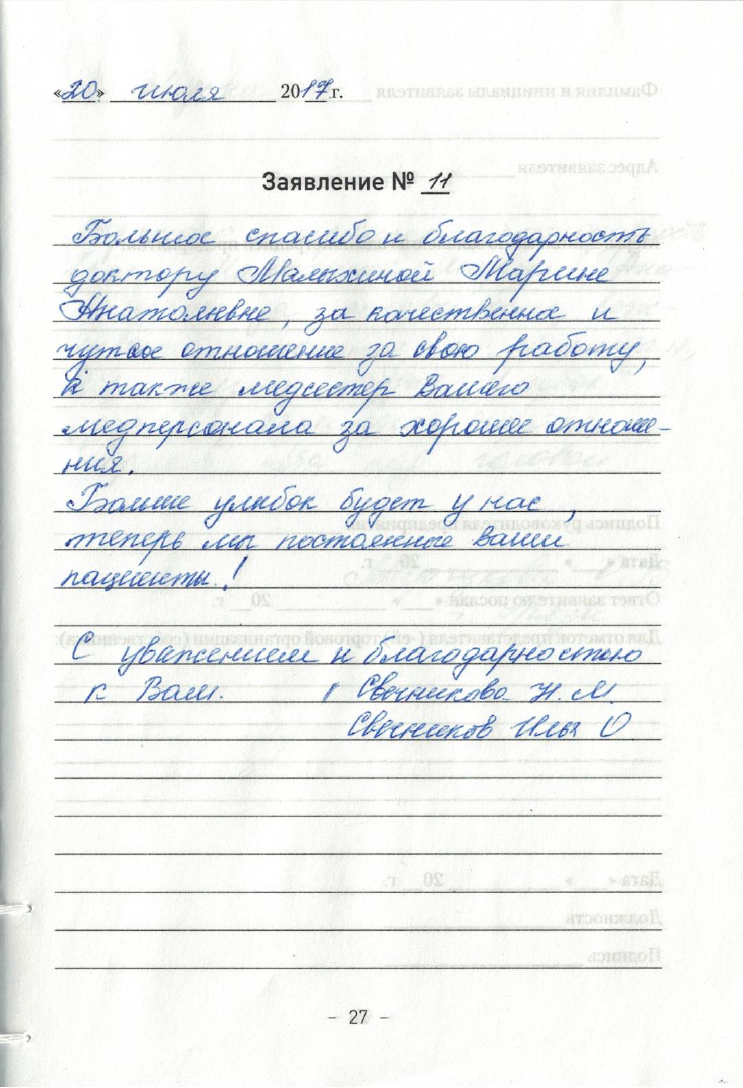 «20» июля 2017 г.
Заявление № 11
Большое спасибо и благодарность
доктору Малыхиной Марине
Анатолиевне, за качественна и
чуткое отношение за свою работу,
а также медсестер Вашего
медперсонала за хорошее отноше-
ния.
Больше улыбок будет у нас,
теперь мы постоянные Ваши
пациенты!
С уважением и благодарностью
к Вам. Свечникова Н. М.
Свечников Илья О
- 27 -